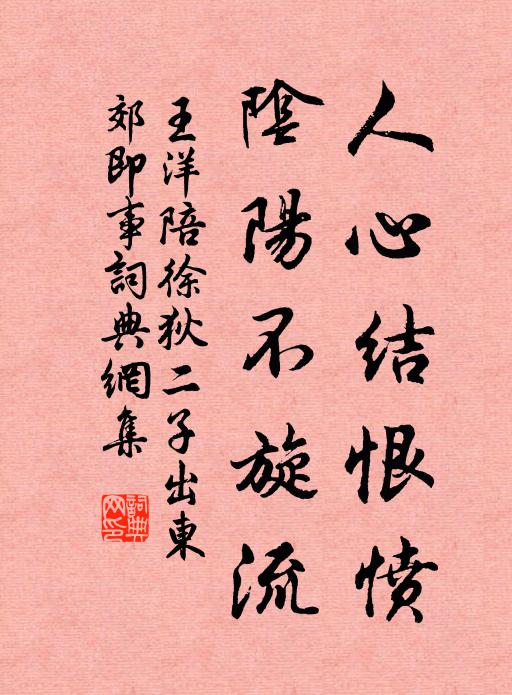 人心結恨憤
陰陽不旋流
王洋陪徐狄二子出東
郊即事詞典網集
詞典
网印